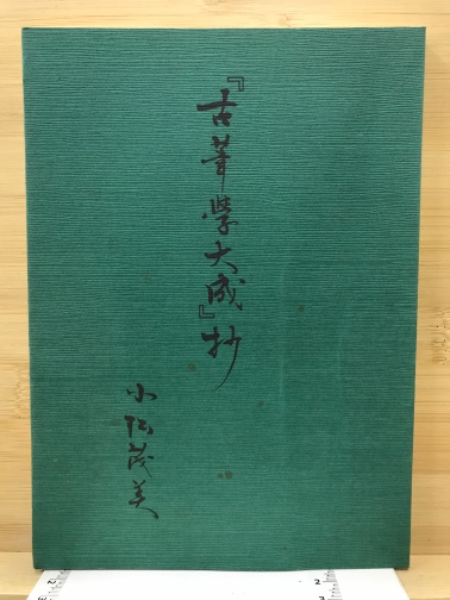 『古筆学大成』抄
小松茂美